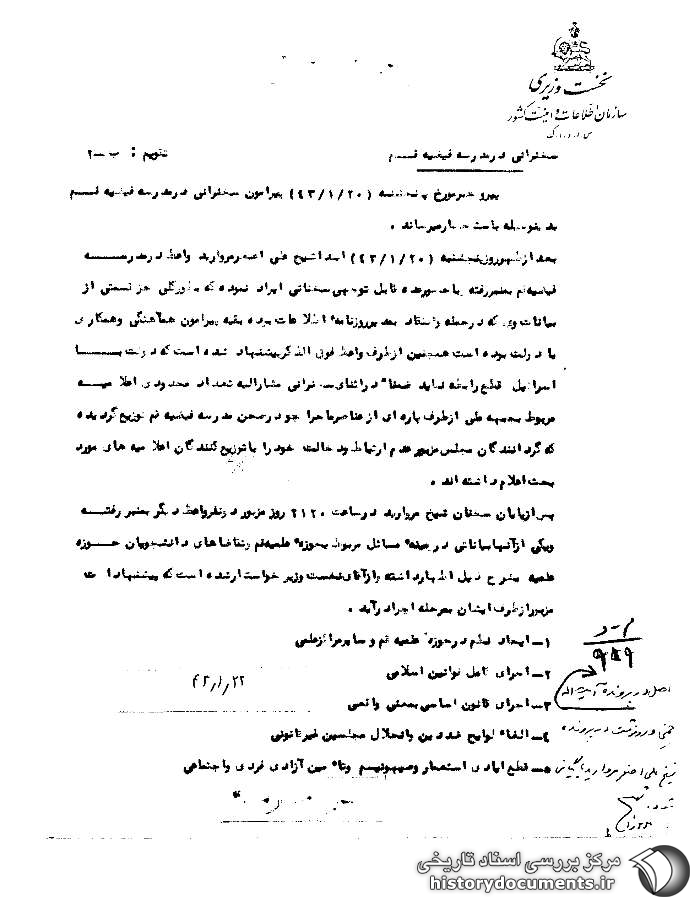 نخست وزیری
سازمان اطلاعات و امنیت کشور
س.ا.و.ا.ک
سخنرانی در مدرسه فیضیه قم
تقویم : ب-۲
پیرو خبر مورخ پنجشنبه (۴۳/۱/۲۰) پیرامون سخنرانی در مدرسه فیضیه قم
بدینوسیله باستحضار میرساند .
بعد از ظهر روز پنجشنبه (۴۳/۱/۲۰) ابتدا شیخ علی اصغر مروارید واعظ در مدرسه
فیضیه قم بمنبر رفته با حضور عده قابل توجهی سخنانی ایراد نموده که بطور کلی جز قسمتی از
بیانات وی که در حمله و انتقاد بمدیر روزنامه اطلاعات بوده بقیه پیرامون هماهنگی و همکاری
با دولت بوده است همچنین از طرف واعظ فوق الذکر پیشنهاد شده است که دولت با
اسرائیل قطع رابطه نماید ضمنا" در اثنای سخنرانی مشارالیه تعداد محدودی اعلامیه
مربوط بجبهه ملی از طرف پاره ای از عناصر ماجراجو در صحن مدرسه فیضیه قم توزیع گردیده
که گردانندگان مجلس مزبور عدم ارتباط و دخالت خود را با توزیع کنندگان اعلامیه های مورد
بحث اعلام داشته اند .
پس از پایان سخنان شیخ مروارید در ساعت ۲۱۲۰ روز مزبور دو نفر واعظ دیگر بمنبر رفته
ویکی از آنها بیاناتی در زمینه مسائل مربوط بحوزه علمیه قم و تقاضاهای دانشجویان حوزه
علمیه بشرح ذیل اظهار داشته و از آقای نخست وزیر خواستار شده است که پیشنهادات
مزبور از طرف ایشان بمرحله اجرا درآید .
۱- ایجاد نظم در حوزه علمیه قم و سایر مراکز علمی
۲- اجرای کامل قوانین اسلامی
۳- اجرای قانون اساسی بمعنی واقعی
۴- الغاء لوایح ضد دین و انحلال مجلسین غیرقانونی
۵- قطع ایادی استعمار و صهیونیسم و تامین آزادی فردی و اجتماعی
۴۳/۱/۲۲
م-د
۹۸۹
اصل در پرونده آیت اله
خمینی و رونوشت در پرونده
شیخ علی اصغر مروارید بایگانی
شود
مرکز بررسی اسناد تاریخی
historydocuments.ir